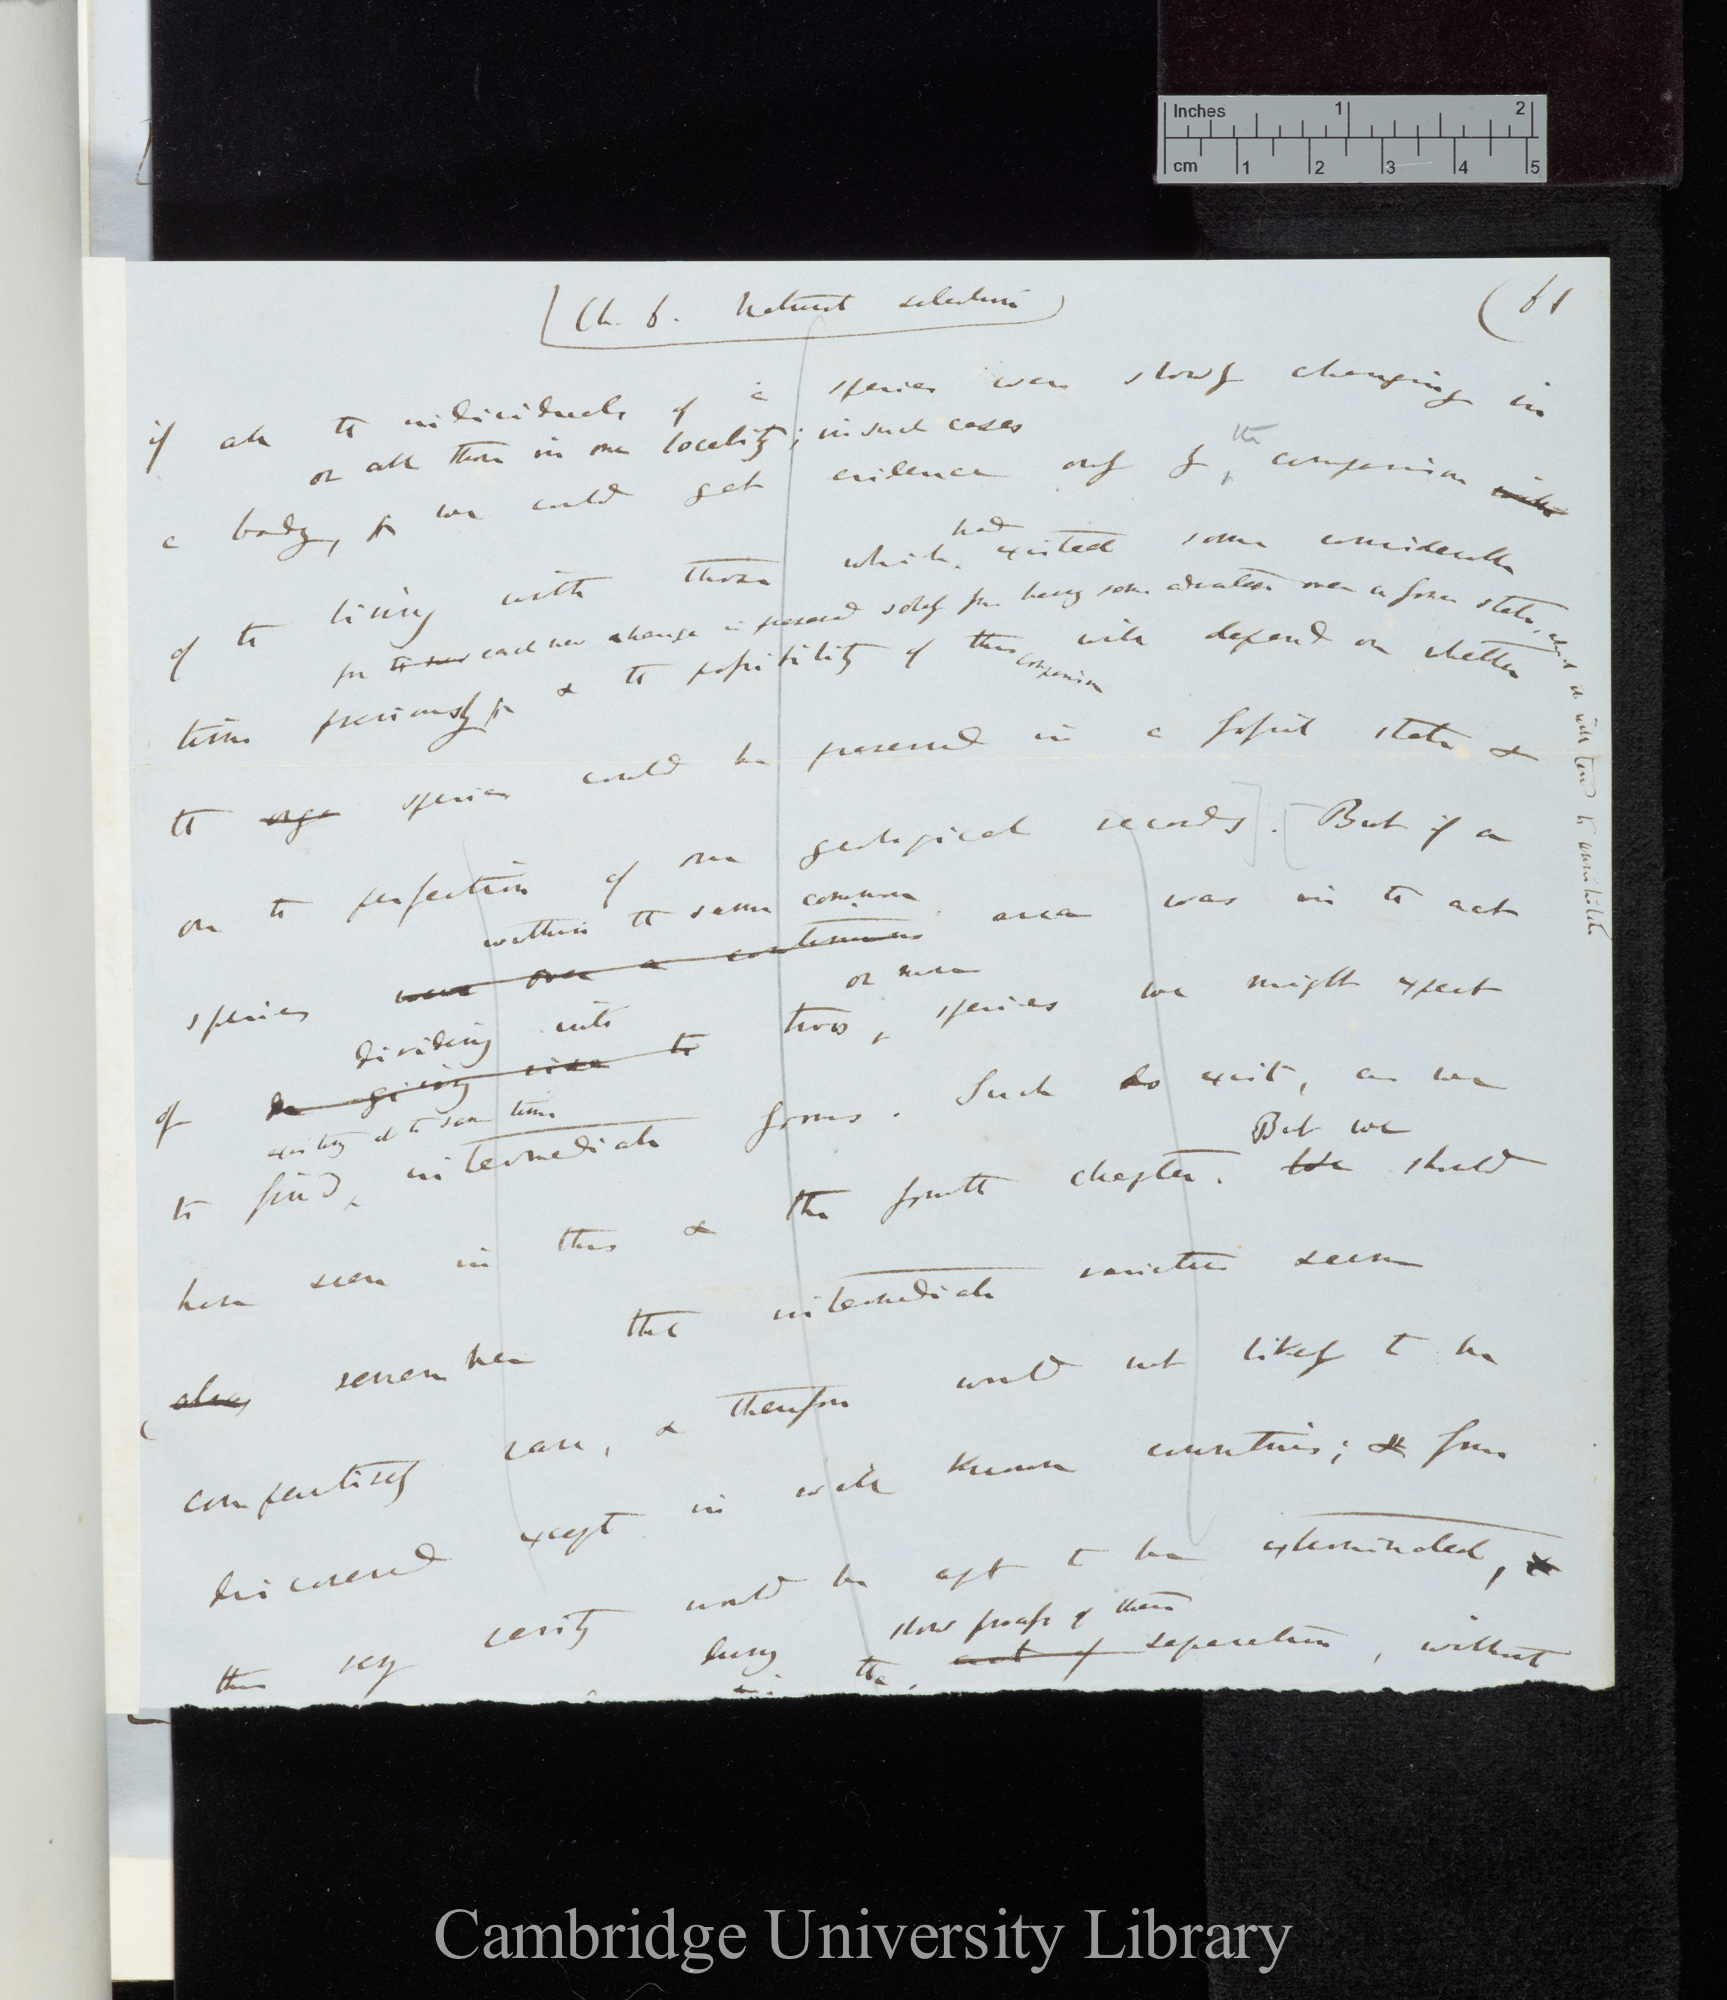 Inches 1 2
cm 1 2 3 4 5
Ch. 6. Natural selection
(61
if all the individuals of a species were slowly changing in
or all those in one locality; in such cases
a body, we could get evidence only by the comparison with
had
of the living with those which existed some considerable
for the new each new change is preserved solely from having some advantage over a former state, & it will tend to annihilate
time previously & the possibility of this comparison will depend on whether
the orga species could be preserved in a fossil state &
on the perfection of our geological records]. [But if a
within the same common
species were over a continuous area was in the act
dividing into or more
of giving rise to two species we might expect
existing at the same time
to find intermediate forms. Such do exist, as we
But we
have seen in this & the fourth chapter. We should
also remember that intermediate varieties seem
comparatively rare, & therefore would not likely to be
discovered except in well known countries; & from
their very rarity would be apt to be exterminated, &
during slow process of their
the act of separation, without
Cambridge University Library